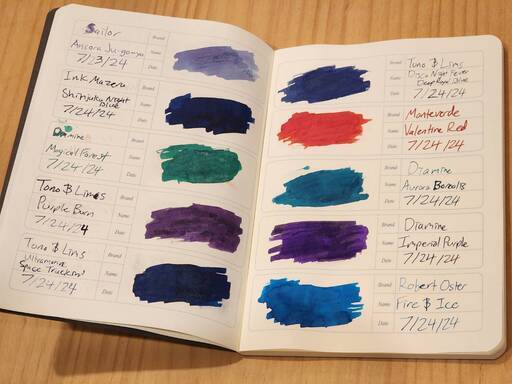 Sailor
Brand
Ancora Ju-go-ya
Name
7/23/24
Date
Ink Mazeru
Brand
Shinjuku Night
Blue
Name
7/24/24
Date
Diamine
Brand
Magical Forest
Name
7/24/24
Date
Tono & Lims
Brand
Purple Burn
Name
7/24/24
Date
Tono & Lims
Brand
Ultramarine
Name
7/24/24
Date
Brand
Tono & Lims
Name
Disco Night Fever
Deep Royal Blue
Date
7/24/24
Brand
Monteverde
Name
Valentine Red
Date
7/24/24
Brand
Diamine
Name
Aurora Borealis
Date
7/24/24
Brand
Diamine
Name
Imperial Purple
Date
7/24/24
Brand
Robert Oster
Name
Fire & Ice
Date
7/24/24